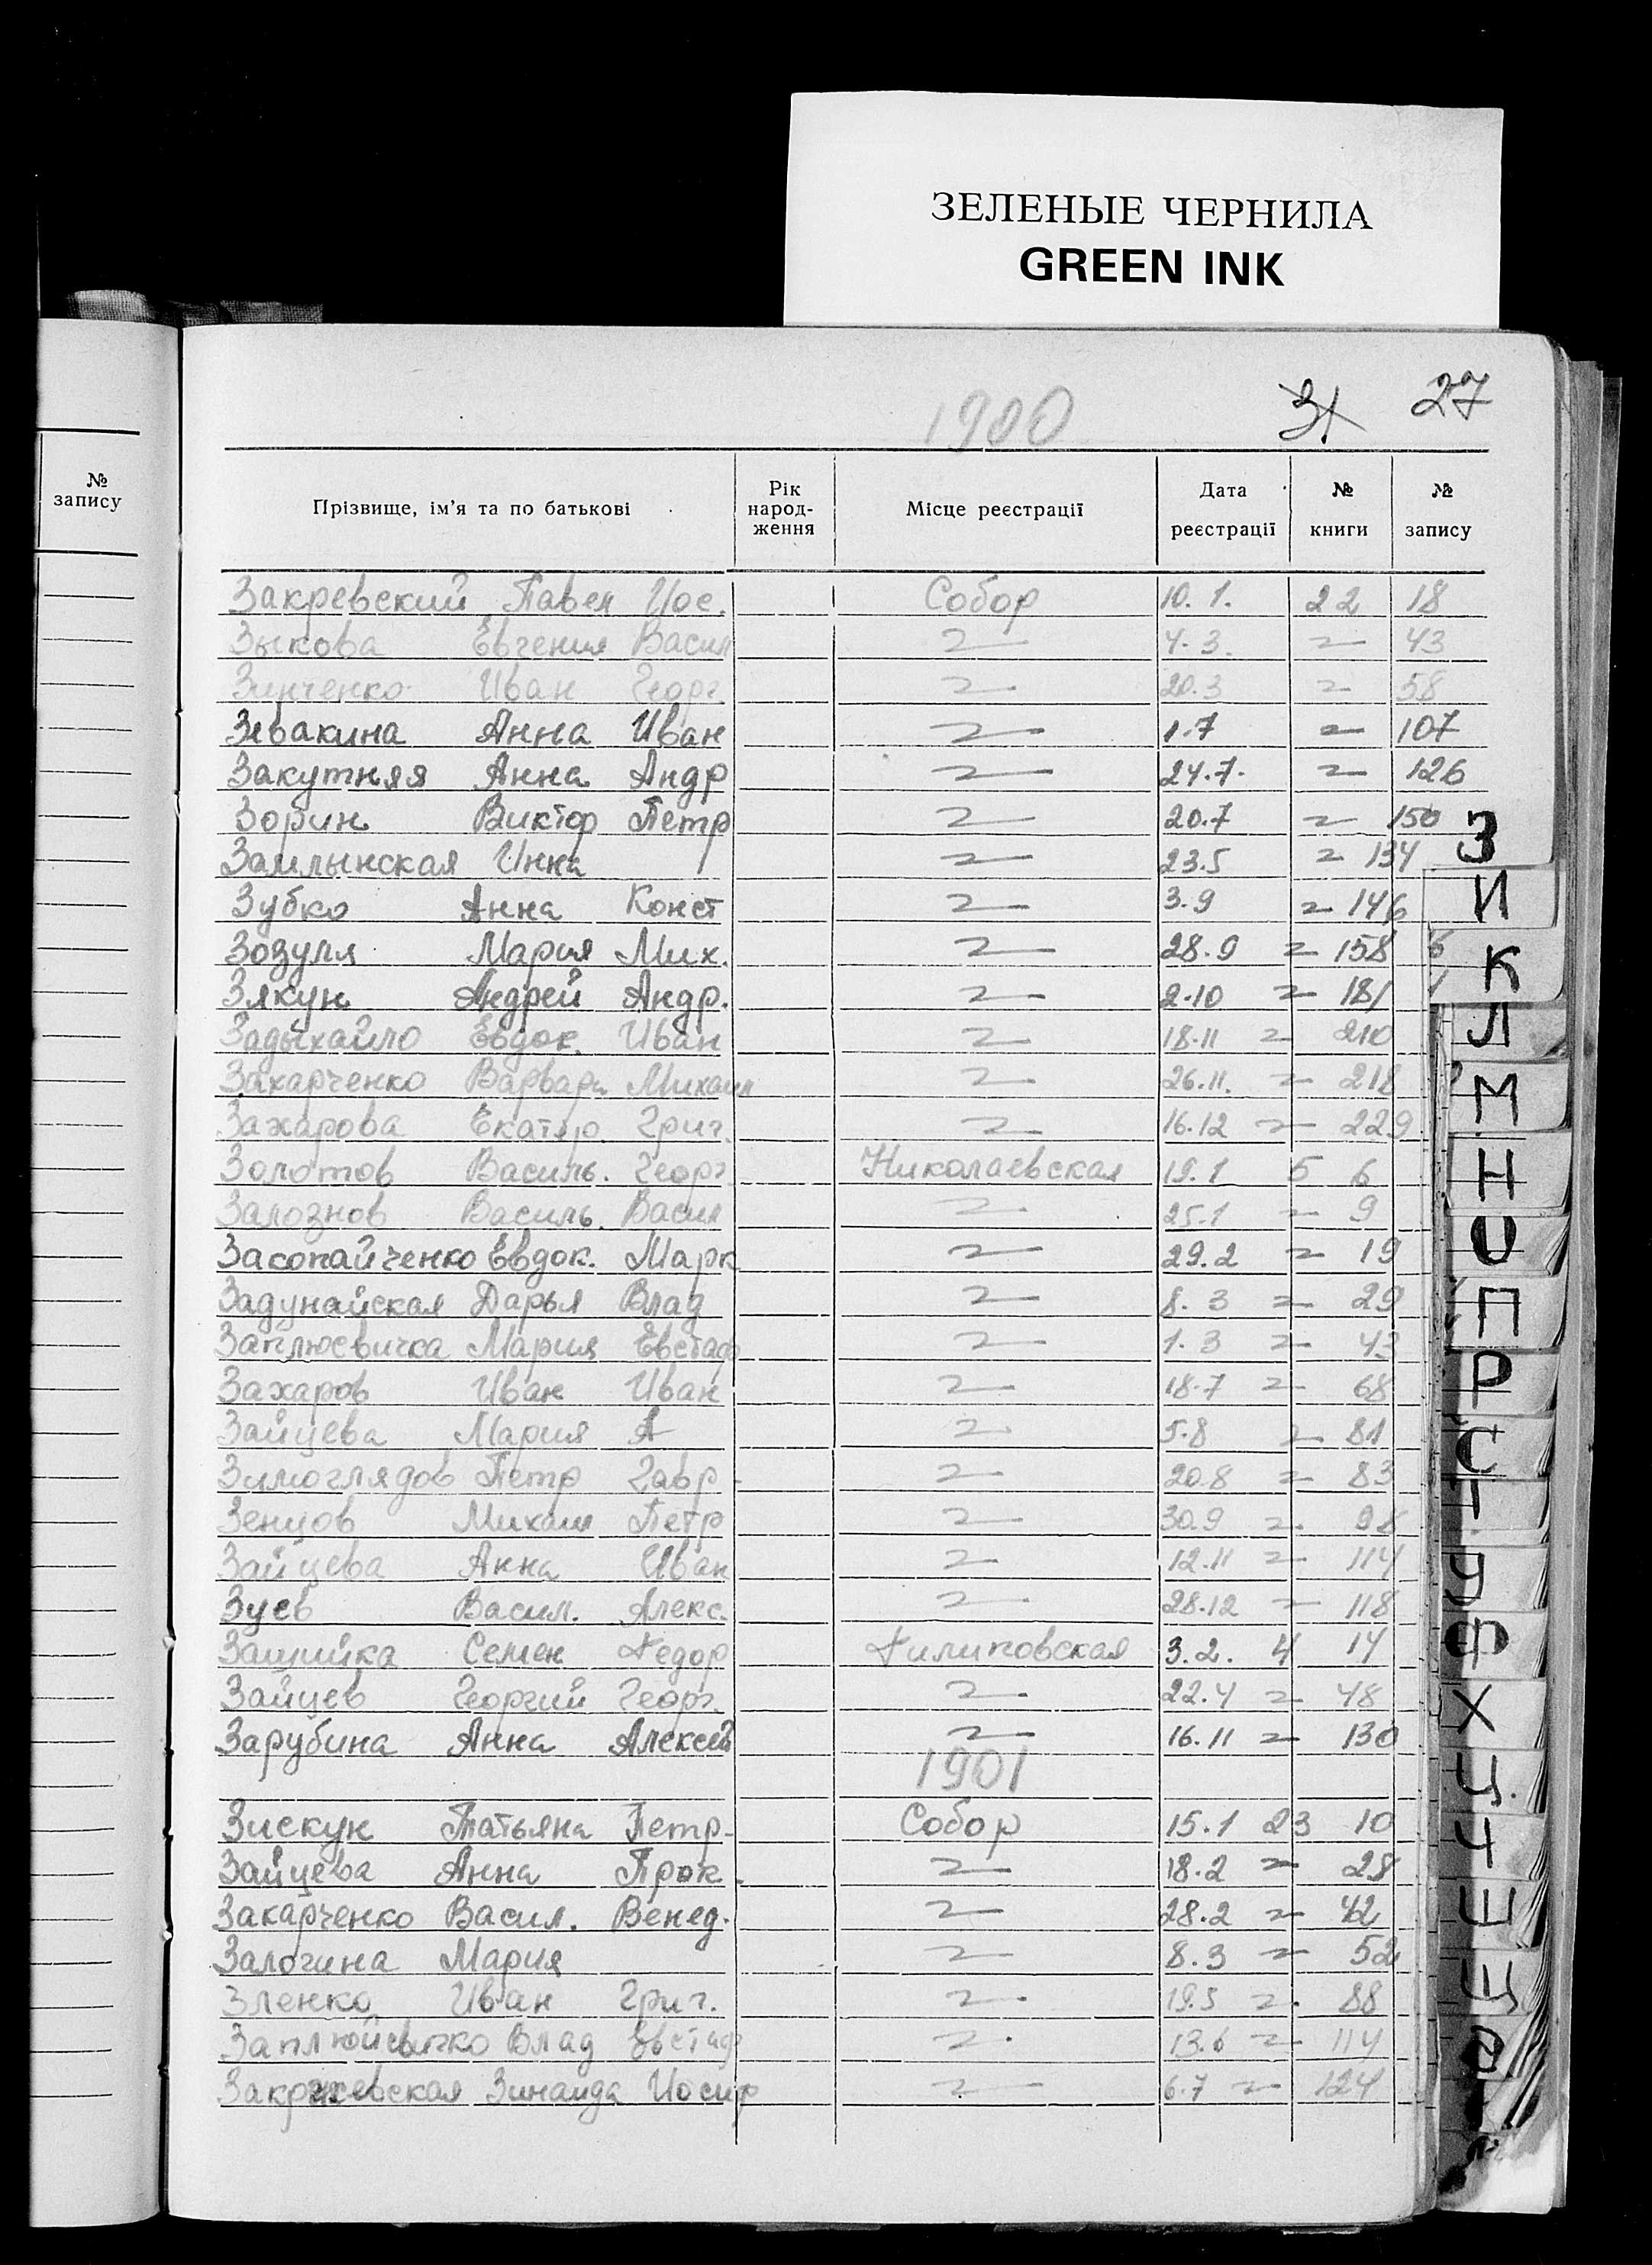 ЗЕЛЕНЫЕ ЧЕРНИЛА
GREEN INK
1900 31 27
№ запису
Прізвище, ім'я та по батькові Рік народ-ження Місце реєстрації Дата реєстрації № книги № запису
Закревский Павел Иос. Собор 10.1. 22 18
Зыкова Евгения Васил 〃 4.3. 〃 43
Зинченко Иван Георг. 〃 20.3 〃 58
Зевакина Анна Иван 〃 1.7 〃 107
Закутняя Анна Андр 〃 24.7. 〃 126
Зорин Виктор Петр 〃 20.7 〃 150
Инна 〃 23.5 〃 134
Зубко Анна Конст 〃 3.9 〃 146
Зозуля Мария Мих. 〃 28.9 〃 158
Зякун Андрей Андр. 〃 2.10 〃 181
Задыхайло Евдок. Иван 〃 18.11 〃 210
Захарченко Варвара Михаил 〃 26.11. 〃 218
Захарова Екатер. Григ. 〃 16.12 〃 229
Золотов Василь. Георг Николаевская 19.1 5 6
Залознов Василь. Васил 〃 25.1 〃 9
Засопайченко Евдок. Марк 〃 29.2 〃 19
Задунайская Дарья Влад 〃 8.3 〃 29
Заплюевичка Мария Евстаф 〃 1.3 〃 43
Захаров Иван Иван 〃 18.7 〃 68
Зайцева Мария А 〃 5.8 〃 81
Зимоглядов Петр Гавр 〃 20.8 〃 83
Зенцов Михаил Петр 〃 30.9 〃 98
Зайцева Анна Иван 〃 12.11 〃 114
Зуев Васил. Алекс. 〃 28.12 〃 118
Семен Федор Филиповская 3.2. 4 14
Зайцев Георгий Георг. 〃 22.4 〃 48
Зарубина Анна Алексей 〃 16.11 〃 130
1901
Зискун Татьяна Петр. Собор 15.1 23 10
Зайцева Анна Прок. 〃 18.2 〃 28
Закарченко Васил. Венед. 〃 28.2 〃 42
Залогина Мария 〃 8.3 〃 52
Зленко Иван Григ. 〃 19.5 〃 88
Заплюйсвичко Влад Евстаф 〃 13.6 〃 114
Закржевская Зинаида Иосиф 〃 6.7 〃 124
З
И
К
Л
М
Н
О
П
Р
С
Т
У
Ф
Х
Ц
Ч
Ш
Щ